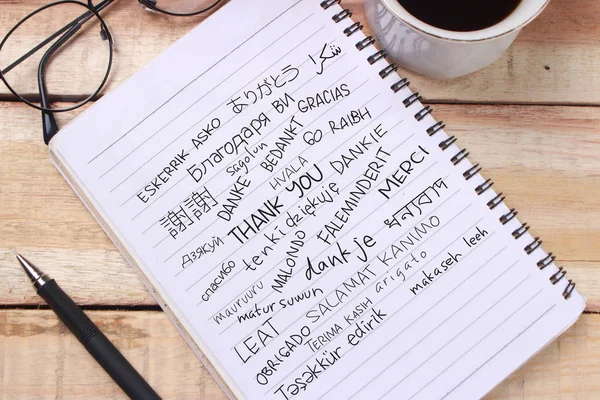 ありがとう شكرا
ESKERRIK ASKO
Благодаря ВИ GRACIAS
Sagolun BEDANKT GO RAIBH
謝謝 DANKE HVALA DANKIE
THANK YOU MERCI
Дзякуй tenki dziękuję FALEMINDERIT
спасибо MALONDO dankje ধন্যবাদ
mauruuru matur suwun SALAMAT KANIMO
LEAT TERIMA KASIH arigato makaseh leeh
OBRIGADO
Təşəkkür edirik